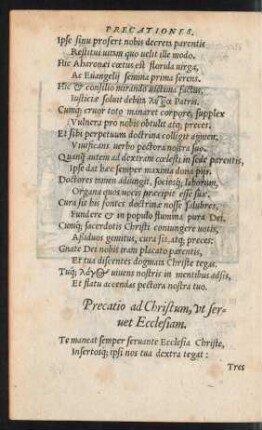 PRECATIONES,
Ipse sinu profert nobis decreta parentis
Restitui uitam quo uelit ille modo.
Hic Aharonei cœtus est florida uirga,
Ac Euangelij semina prima serens.
Hic & consilio mirando uictima factus,
Iusticiæ soluit debita λύτρα Patris.
Cumq; cruor toto manaret corpore, supplex
Vulnera pro nobis obtulit atq; preces.
Et sibi perpetuum doctrina colligit agmen,
Viuificans uerbo pectora nostra suo.
Quinq; autem ad dextram cœlesti in sede parentis,
Ipse dat hæc semper maxima dona pijs.
Doctores etiam adiungit, sociosq; laborum,
Organa quos uoces præcipit esse suæ.
Cura sit his fontes doctrinæ nosse salubres,
Fundere & in populo flumina pura Dei.
Cumq; sacerdotis Christi contingere uotis,
Assiduos gemitus, cura sit, atq; preces:
Gnate Dei nobis iram placato parentis,
Et tua discentes dogmata Christe tegat.
Tuq; λόγος uiuens nostris in mentibus adsis,
Et flatu accendas pectora nostra tuo.
Precatio ad Christum, vt ser-
uet Ecclesiam.
Te maneat semper seruante Ecclesia Christe,
Insertosq; ipsi nos tua dextra tegat:
Tres